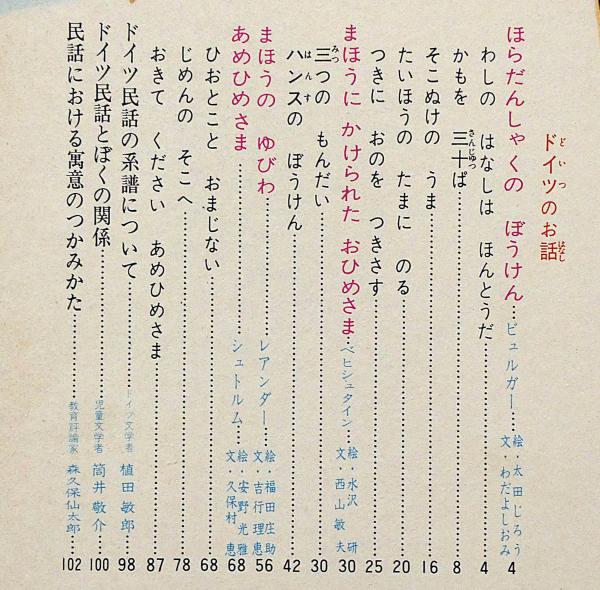 ドイツのお話
どいつ
はなし
ほらだんしゃくの ぼうけん…ビュルガー…絵・太田じろう 文・わだよしおみ 4
わしの はなしは ほんとうだ………4
かもを 三十ぱ………8
さんじゅっ
そこぬけの うま………16
たいほうの たまに のる………20
つきに おのを つきさす………25
まほうに かけられた おひめさま…ベヒシュタイン…絵・水沢 研 文・西山敏夫 30
三つの もんだい………30
みっ
ハンスの ぼうけん………42
はんす
まほうの ゆびわ………レアンダー…絵・福田庄助 文・吉行理恵 56
あめひめさま………シュトルム…絵・安野光雅 文・久保村 恵 68
ひおとこと おまじない………68
じめんの そこへ………78
おきて ください あめひめさま………87
ドイツ民話の系譜について………ドイツ文学者 植田敏郎…98
ドイツ民話とぼくの関係………児童文学者 筒井敬介…100
民話における寓意のつかみかた………教育評論家 森久保仙太郎…102